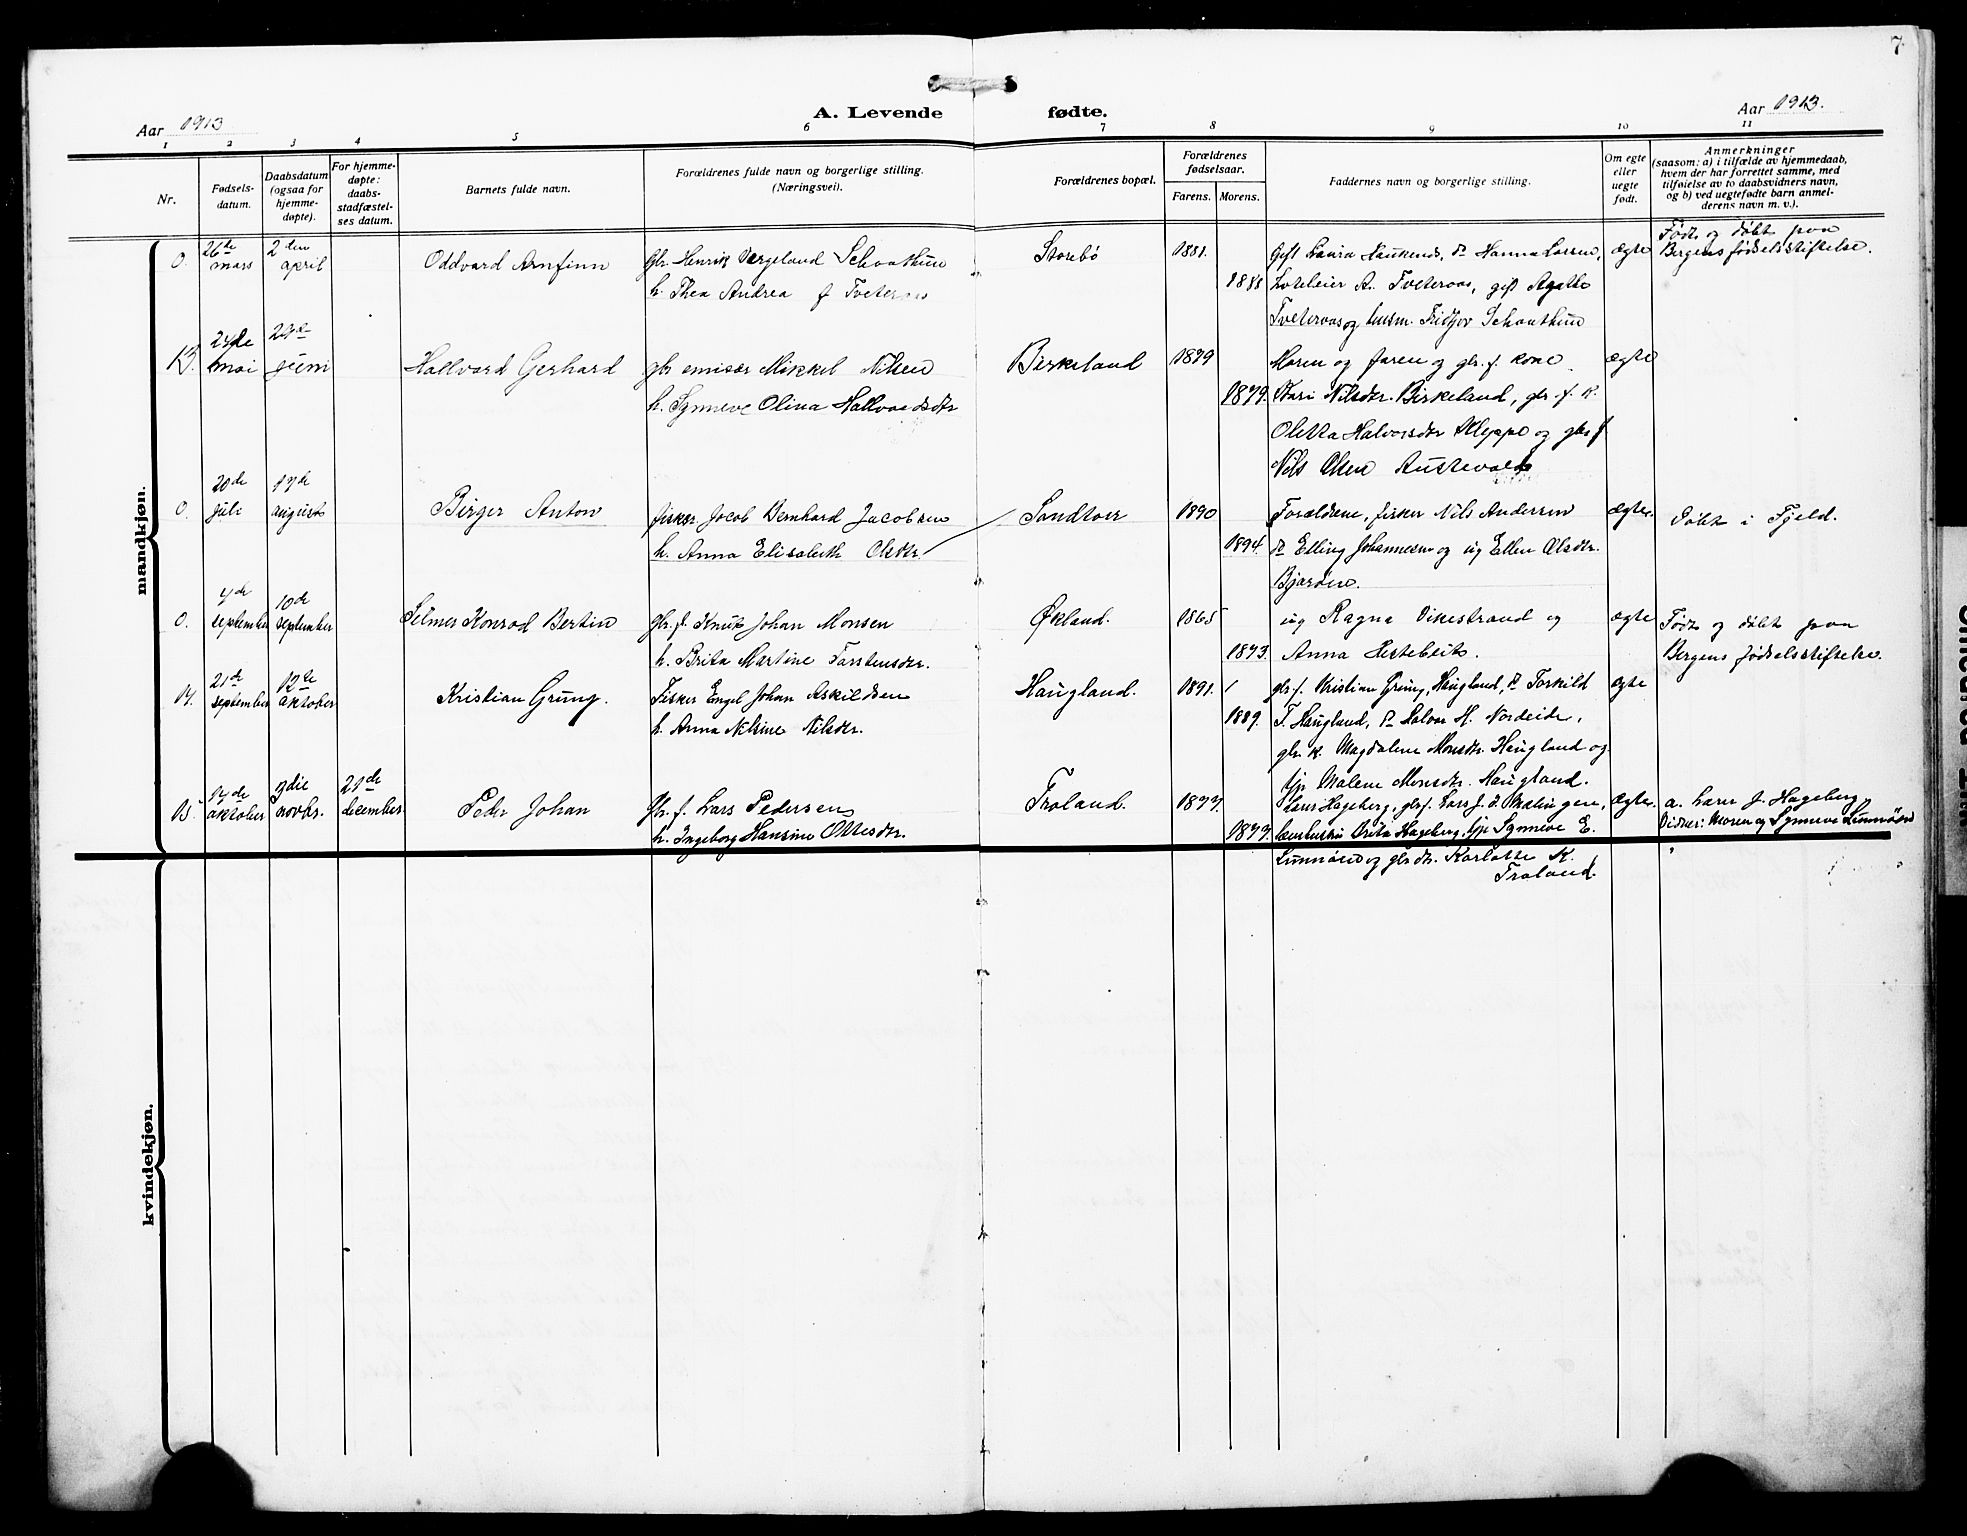 7
A. Levende fødte.
Aar 1913
Aar 1913.
1 2 3 4 5 6 7 8 9 10 11
Nr.
Fødsels-
datum.
Daabsdatum
(ogsaa for
hjemme-
døpte).
For hjemme-
døpte:
daabs-
stadfæstel-
ses datum.
Barnets fulde navn.
Forældrenes fulde navn og borgerlige stilling.
(Næringsvei).
Forældrenes bopæl.
Forældrenes
fødselsaar.
Farens. Morens.
Faddernes navn og borgerlige stilling.
Om egte
eller
uegte
født.
Anmerkninger
(saasom: a) i tilfælde av hjemmedaab,
hvem der har forrettet samme, med
tilføielse av to daabsvidners navn,
og b) ved uegtefødte barn anmel-
derens navn m. v.).
mandkjøn.
0. 26de mars 2den april Oddvard Arnfinn
gbr. Henrik Vergeland Schaathun
h. Thea Andrea f Tveteraas
Storebø 1881. 1888
Gift Laura Haukenes, do Hanna Larsen,
Loteleier A. Tveteraas, gift Agathe
Tveteraas og husm. Fridtjov Schaathun
ægte
Født og døbt paa
Bergens fødselsstiftelse.
13. 24de mai 29de juni Hallvard Gerhard
gbr emisær Mikkel Nilsen
h. Synneve Olina Hallvardsdtr
Birkeland 1879 1879.
Moren og faren og gbr. f. kone
Kari Nilsdtr. Birkeland, gbr. f. k.
Oletta Halvorsdtr Kleppe og gbr f
Nils Olsen Austevold
ægte
0. 20de juli 17de august Birger Anton
fisker Jacob Bernhard Jacobsen
h. Anna Elisabeth Olsdtr.
Sandtorv 1890 1894.
Forældrene, fisker Nils Andersen
do Elling Johannesen og ug Ellen Olsdtr.
Bjarøen.
ægte.
Døbt i Fjeld.
0. 4de september 10de september Selmer Konrad Bertin
gbr. f. Knut Johan Monsen
h. Brita Martine Torstensdtr.
Økland. 1865 1873.
ug Ragna Vikestrand og
Anna Hestebeits.
ægte
Født og døbt paa
Bergens fødselsstiftelse.
14. 21de september 12te oktober Kristian Grung.
Fisker Engel Johan Askildsen
h. Anna Nelsine Nilsdtr.
Haugland. 1891. 1889.
gbr. f. Kristian Grung, Haugland, do Torkild
T. Haugland, do Halvor H. Nordeide,
gbr. k. Magdalene Monsdtr. Haugland og
tjp Malene Monsdtr. Haugland.
ægte
15. 14de oktober 3die novbr. 21de december Peder Johan
Gbr. f. Lars Pedersen
h. Ingeborg Hansine Ottesdtr.
Troland. 1877. 1877.
Lars Hageberg, gbr f. Lars J. d. Mælingene,
lærerhustru Brita Hageberg, tjp Synneve E.
Lunnøen og gbr dtr. Karlotte K.
Troland.
ægte.
a. Lærer J. Hageberg.
Vidner: Moren og Synneve Lunnøen
kvindekjøn.